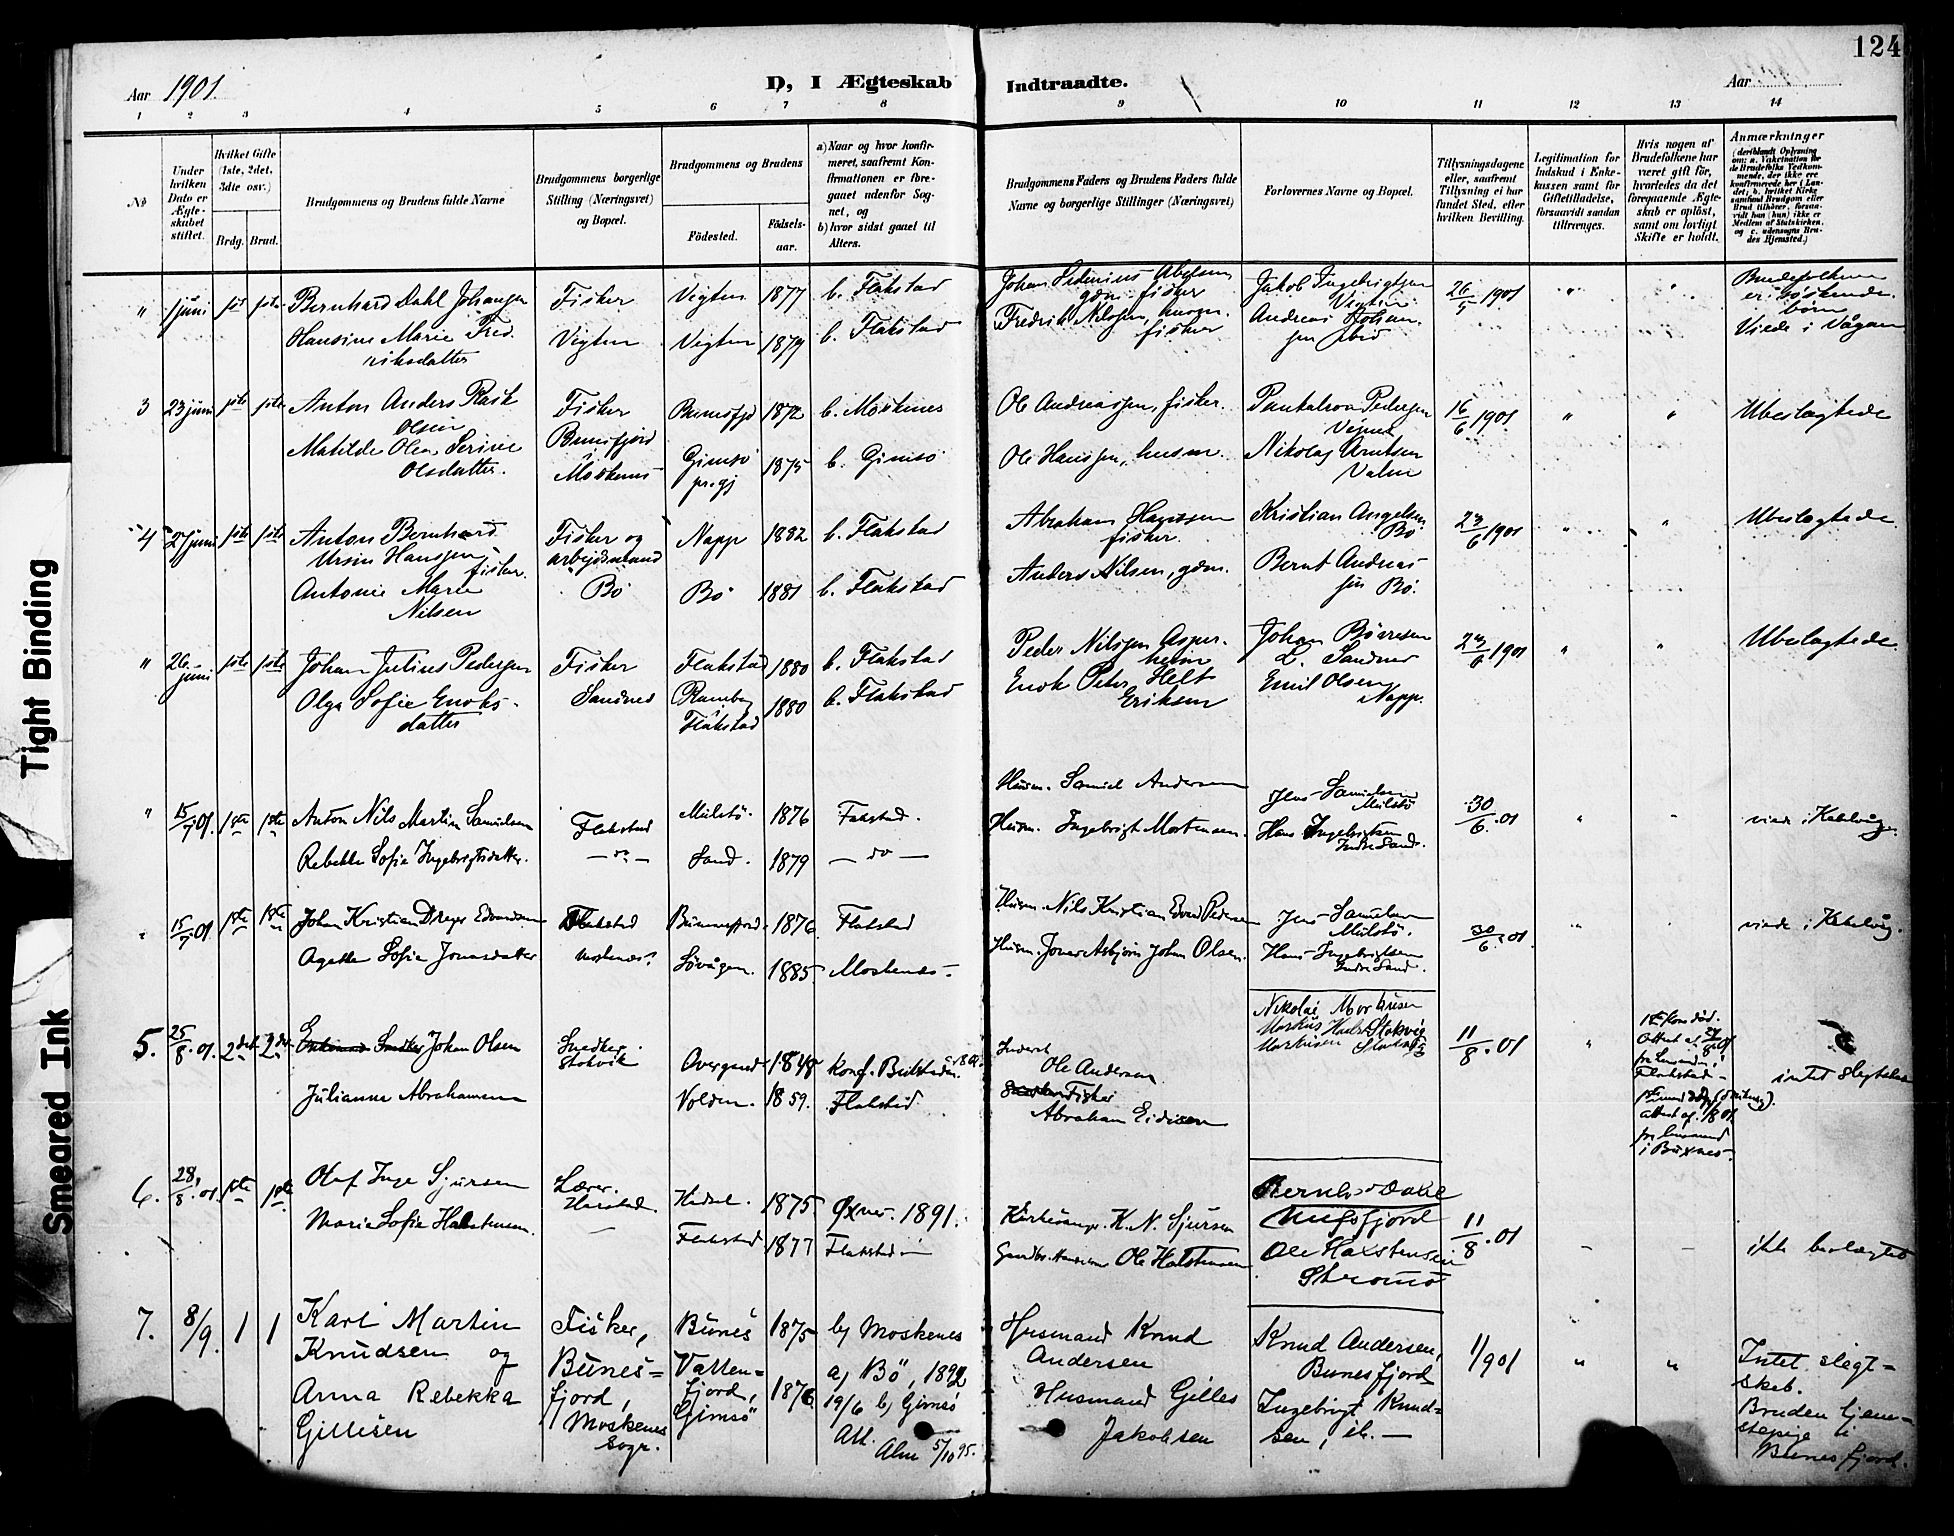 124
Aar 1901. D, I Ægteskab Indtraadte. Aar
1 2 3 4 5 6 7 8 9 10 11 12 13 14
No
Under hvilken Dato er Ægteskabet stiftet.
Hvilket Gifte (1ste, 2det, 3die osv.)
Brdg. Brud.
Brudgommens og Brudens fulde Navne
Brudgommens borgerlige Stilling (Næringsvei) og Bopæl.
Brudgommens og Brudens
Fødested. Fødselsaar.
a) Naar og hvor konfirmeret, saafremt Konfirmationen er foregaaet udenfor Sognet, og
b) hvor sidst gaaet til Alters.
Brudgommens Faders og Brudens Faders fulde Navne og borgerlige Stillinger (Næringsvei)
Forlovernes Navne og Bopæl.
Tillysningsdagene eller, saafremt Tillysning ei har fundet Sted, efter hvilken Bevilling.
Legitimation for Indskud i Enkekassen samt for Giftetilladelse, forsaavidt saadan tiltrænges.
Hvis nogen af Brudefolkene har været gift før, hvorledes da det foregaaende Ægteskab er opløst, samt om lovligt Skifte er holdt.
Anmærkninger
(deriblandt Oplysning om: a. Vakcination for de Brudefolks Vedkommende, der ikke ere konfirmerede her i Landet; b. hvilket Kirkesamfund Brudgom eller Brud tilhører, forsaavidt han (hun) ikke er Medlem af Statskirken, og c. udensogns Brudes Hjemsted.)
" 1 juni 1ste 1ste Bernhard Dahl Johansen Fisker Vigten 1877 b. Flakstad
Johan Sidenius Abelsen gdm. fisker Jakob Ingebrigtsen Vigten 26/5 1901 " " Brudefolkene er søskendebørn
Hansine Marie Fredriksdatter Vigten Vigten 1879 b. Flakstad
Fredrik Nilssen, husm. fisker Andreas Johansen ibid Viede i Vågan
3 23 juni 1ste 1ste Anton Anders Rask Olsen Fisker Bunesfjord Moskenes Bunesfjd 1872 b. Moskenes
Ole Andreassen, fisker. Pedersen 16/6 1901 " " Ubeslægtede
Matilde Olea Serine Olsdatter. Gimsø pr.gj 1875 b. Gimsø
Ole Hanssen, husm. Nikolaj Arntsen
4 27 juni 1ste 1ste Anton Bernhard Ursin Hanssen, fisker. Fisker og arbejdsmand Bø Napp 1882 b. Flakstad
Abraham Hanssen fisker. Kristian Angelsen Bø 23/6 1901 " " Ubeslægtede
Antonie Marie Nilsen Bø 1881 b. Flakstad
Anders Nilsen, gdm. Bernt Andreassen Bø.
" 26 juni 1ste 1ste Johan Julius Pedersen Fisker Sandnes Flakstad 1880 b. Flakstad
Peder Nilssen Asperheim Johan Børresen L. Sandnes 23/6 1901 " " Ubeslagtede
Olga Sofie Enoksdatter Ramberg Flakstad 1880 b. Flakstad
Enok Peter Helt Eriksen Emil Olsen Napp.
" 15/7 01. 1ste 1ste Anton Nils Martin Samuelsen Flakstad Mulstø. 1876 Flakstad.
Husm. Samuel Andersen Jens Samuelsen Mulstø 30/6. 01 " " viede i Kabelvåg.
Rebekka Sofie Ingebrigtsdatter. — do — Sand. 1879 — do —
Husm. Ingebrigt Mortensen. Hans Ingebrigtsen Indre Sand.
" 15/7 01. 1ste 1ste Johan Kristian Dreyer Edvardsen Flakstad Bunnesfjord. 1876 Flakstad
Husm. Nils Kristian Evard Pedersen Jens Samuelsen Mulstø. 30/6. 01 " viede i Kabelvåg.
Agathe Sofie Jonasdatter Moskenes? Sørvågen. 1885 Moskenes.
Husm. Jonas Asbjørn Johan Olsen. Hans Ingebrigtsen Indre Sand.
5. 25/8. 01. 2det. 2det. Johan Olsen Snedker Stokvik Overgaard 1848 konf. Buksnes
Inderst Ole Andersen Nikolai Markusen Markus Markusen Stokvig 11/8. 01 " intet slegtskab
Julianne Abrahamsen Volden. 1859. Flakstad
Fisker Abraham Eidisen
6. 28/8. 01. 1ste 1ste Olaf Inge Sjursen Lærer. Hadsel. 1875 Øxnes. 1891.
Kirkesanger K. N. Sjursen Bernhard Dahl Nufsfjord 11/8. 01 — — ikke beslægtet
Maria Sofie Halstensen. Flakstad 1877 Flakstad
Gaardbr. Ole Halstensen Ole Halstensen Strømø
7. 8/9. 1 1 Karl Martin Knudsen og Fisker, Bunesfjord, Moskenes Sogn. Bunes 1875 b) Moskenes
Husmand Knud Andersen Knud Andersen, Bunesfjord 1/901 " " Intet slegtskab.
Anna Rebekka Gillisen Vattenfjord, Gimsö 1876 a) Bö, 1892 19/6 b) Gimsö Att. Alm 5/10 95.
Husmand Gilles Jakobsen Ingebrigt Knudsen, ib. — Bruden tjenestepige i Bunesfjord.
Tight Binding
Smeared Ink